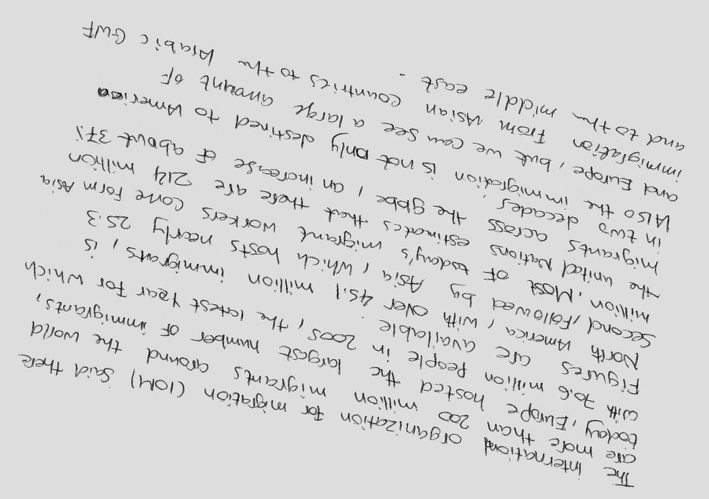 The international organization for migration (IOM) said there
are more than 200 million migrants around the world
today, Europe hosted the largest number of immigrants,
with 70.6 million people in 2005, the latest year for which
figures are available.
North America, with over 45.1 million immigrants, is
second, followed by Asia, which hosts nearly 25.3
million. Most of today's migrant workers come form Asia
the united Nations estimates that there are 214 million
migrants across the globe, an increase of about 37%
in two decades.
Also the immigration is not only destined to America
and Europe, but we can see a large amount of
immigration from Asian countries to the Arabic GWF
and to the middle east.